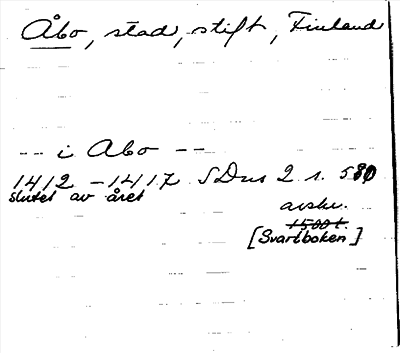 Åbo, stad, stift, Finland
-- i Åbo --
1412 - 1417 SDns 2 s. 580
slutet av året
avskr.
1500 t.
[Svartboken]